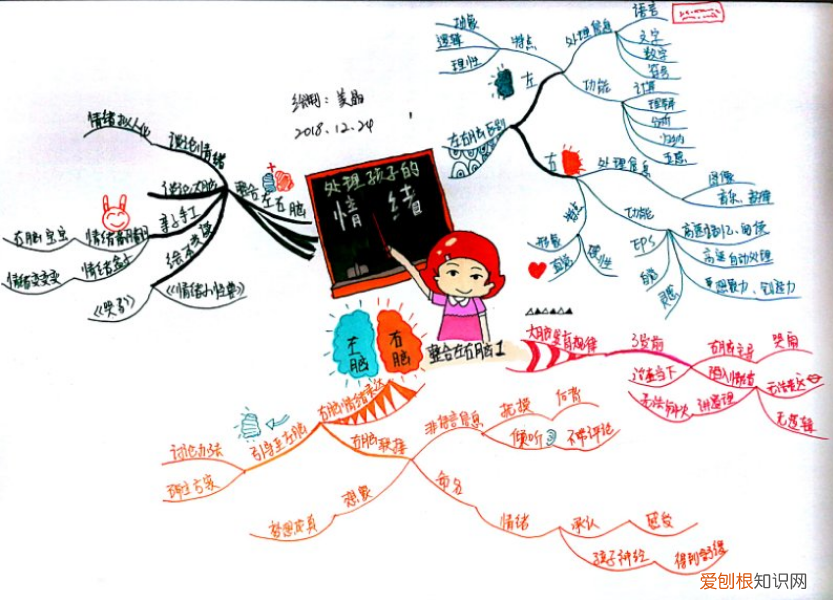 处理孩子的
情绪
左脑
右脑
整合左右脑1
绘制：美晶
2018.12.24
左右脑区别
左
特点
逻辑
理性
处理信息
语言
文字
数字
符号
功能
计算
理解
分析
归纳
右
处理信息
图像
音乐、韵律
功能
高速记忆、阅读
高速自动处理
想象力、创造力
EPS
灵感
特点
形象
直觉
感性
大脑发育规律
3岁前
右脑主导
哭闹
活在当下
陷入情绪
无法表达
讲道理
无逻辑
右脑情绪表达
引导至左脑
讨论办法
确立方案
右脑联接
非语言信息
抚摸
后背
倾听
不带评论
命名
情绪
承认
感受
孩子神经
得到舒缓
想象
梦想成真
整合左右脑
谈论情绪
情绪拟人化
谈论大脑
亲子手工
情绪翻翻
右脑宝宝
情绪盒子
情绪变变变
绘本阅读
《哭了》
《情绪小怪兽》
爱刨根知识网